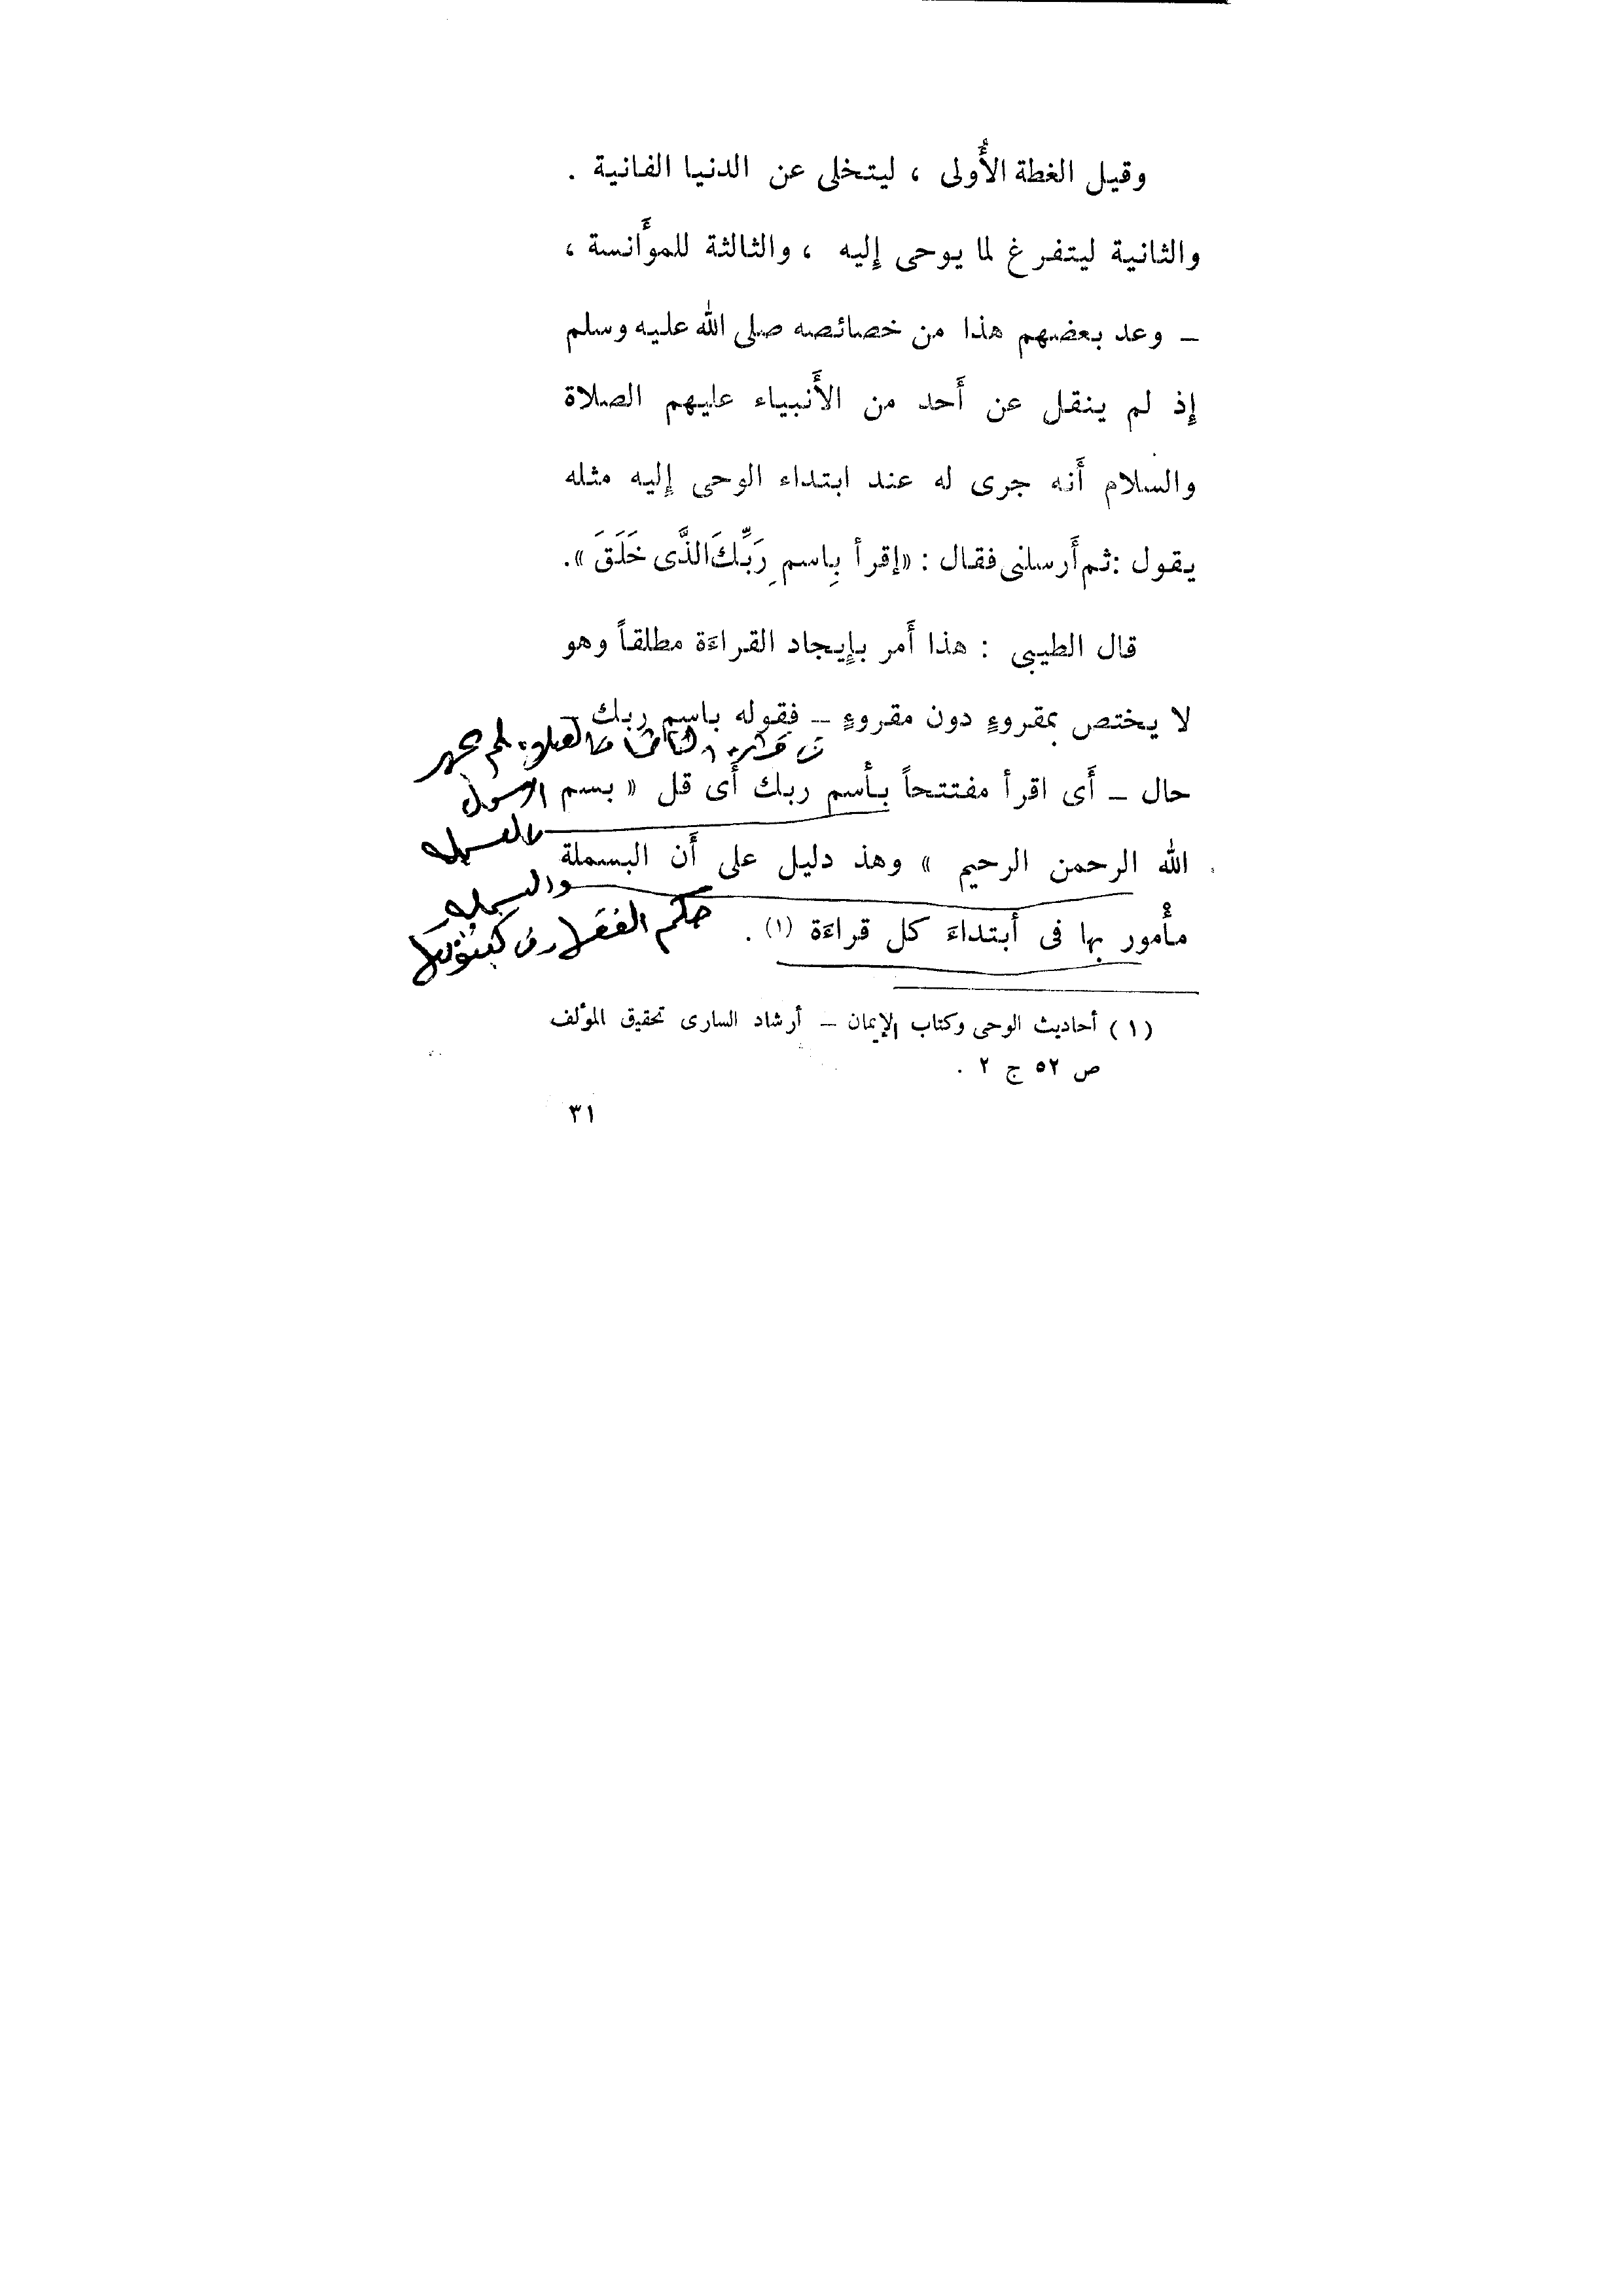 وقيل الغطة الأُولى ، ليتخلى عن الدنيا الفانية .
والثانية ليتفرغ لما يوحى إليه ، والثالثة للمؤَانسة ،
ـ وعد بعضهم هذا من خصائصه صلى الله عليه وسلم
إِذ لم ينقل عن أَحد من الأَنبياء عليهم الصلاة
والسلام أَنه جرى له عند ابتداء الوحى إِليه مثله
يقول : ثم أَرسلنى فقال : «إقرأ بِاسم رَبِّكَ الذَّى خَلَقَ ».
قال الطيبى : هذا أَمر بإِيجاد القراءَة مطلقاً وهو
لا يختص بمقروءٍ دون مقروءٍ ـ فقوله باسم ربك
حال ـ أَى اقرأ مفتتحاً بأسم ربك أَى قل « بسم
الله الرحمن الرحيم » وهذ دليل على أَن البسملة
مأْمور بها فى أَبتداءَ كل قراءَة (١) .
لم يجهر
الرسول
والبسملة
حكم
(١) أحاديث الوحى وكتاب الإيمان ـ أرشاد السارى تحقيق المؤلف
ص ٥٢ ج ٢ .
٣١